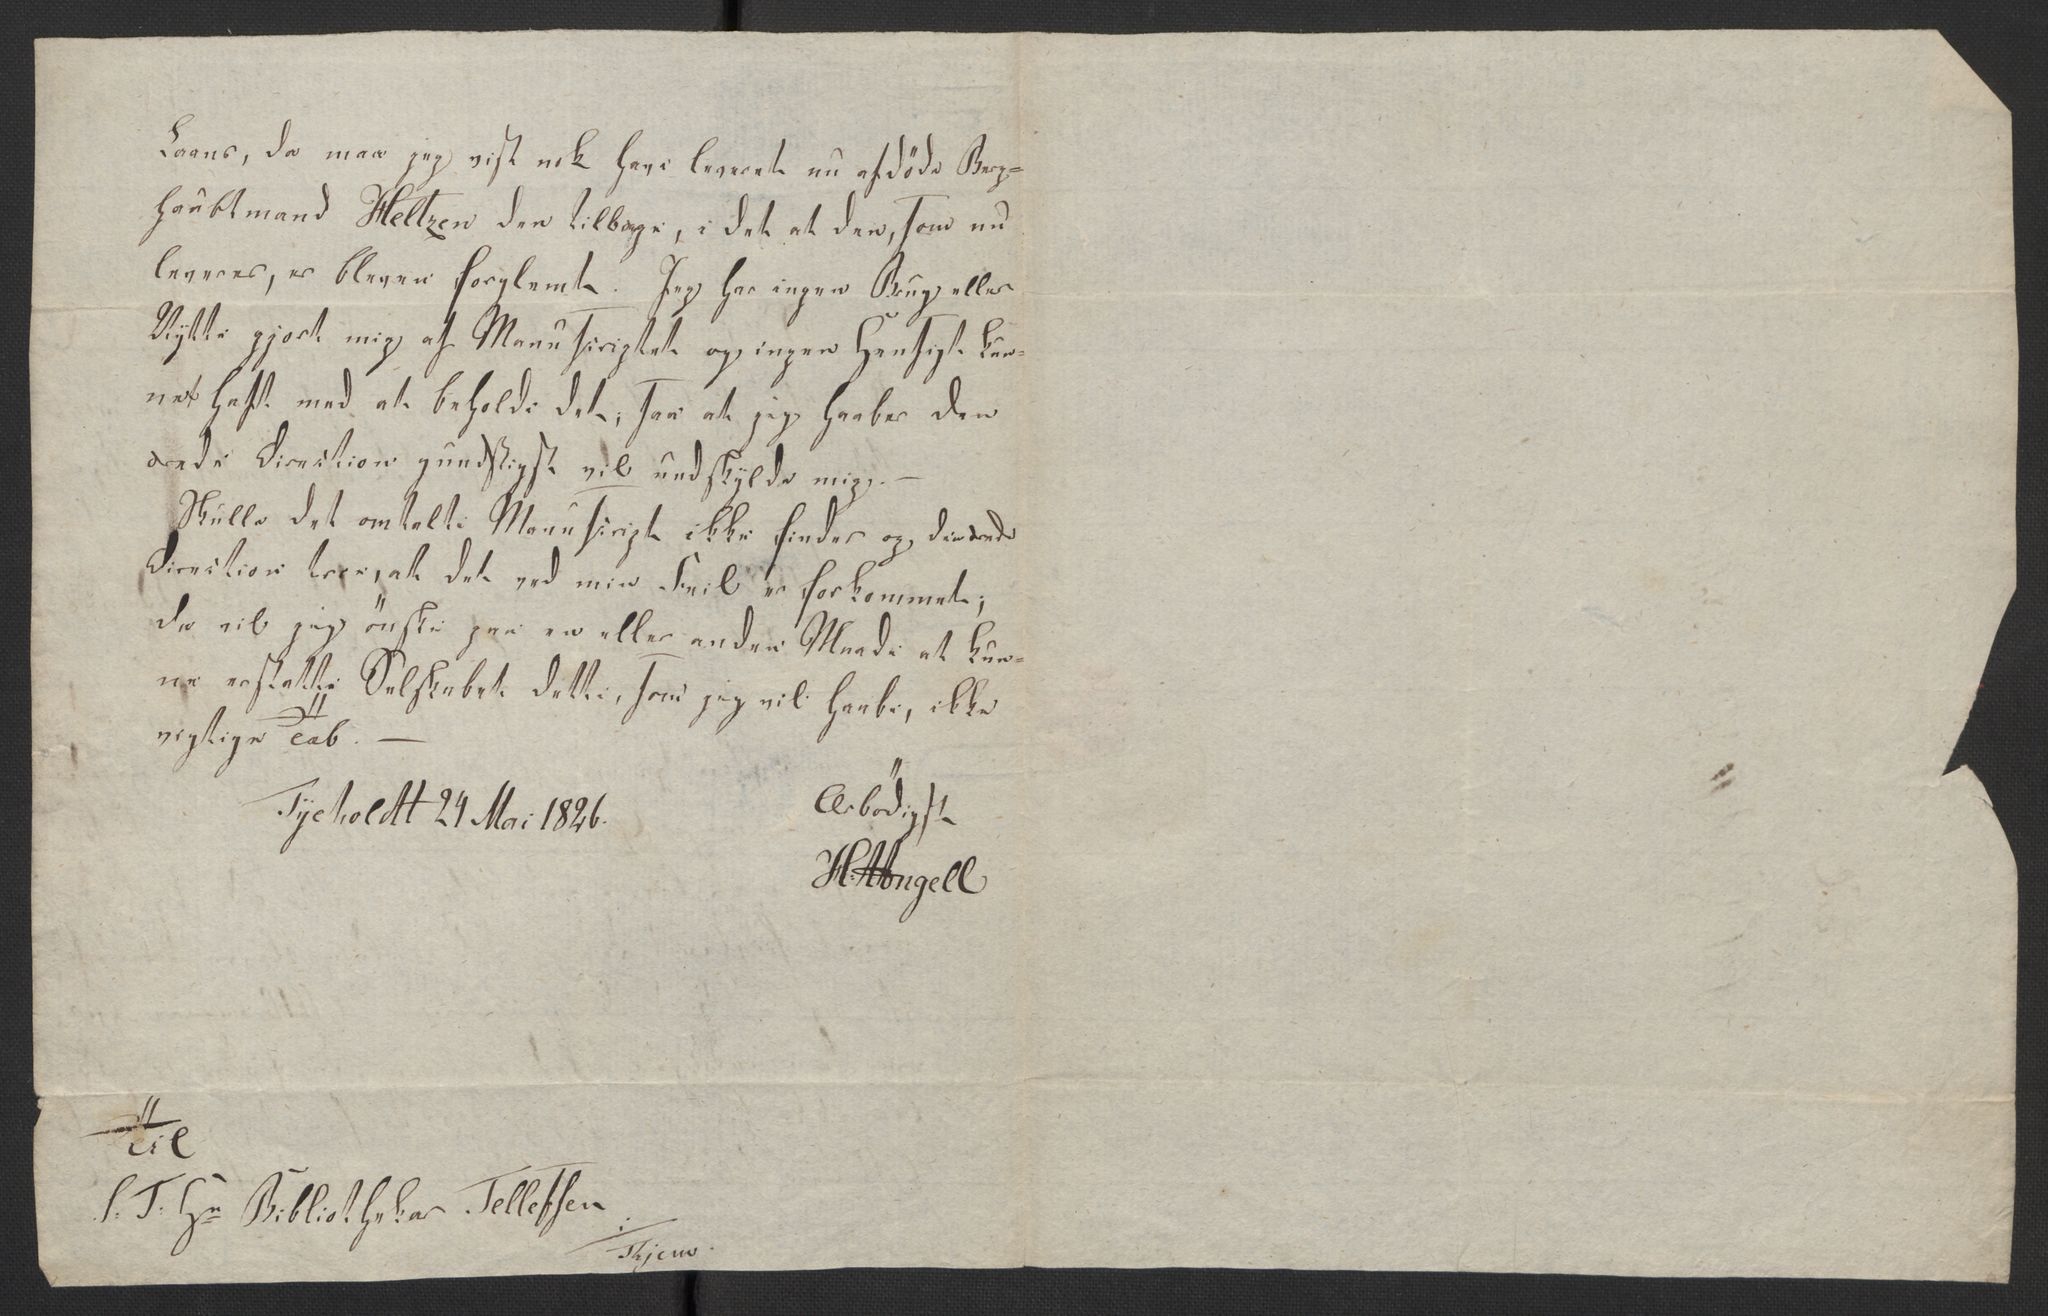 Laans, da maa jeg vist nok have leveret nu afdöde Berg=
haubtmand Heltzen den tilbage, i det at den, som nu
leveres, er bleven forglemt. Jeg har ingen Brug eller
Nytte gjort mig af Manuscriptet og ingen Hensigt kun=
net haft med at beholde det; saa at jeg haaber den
ærede Direction gundstigst vil undskylde mig. —
Skulle det omtalte Manuscript ikke findes og den ærede
Direction troer, at det ved min Feil er forkommet;
da vil jeg önske paa en eller anden Maade at kun=
ne erstatte Selskabet dette, som jeg vil haabe, ikke
vigtige Tab. —
Tycholdt 24 Mai 1826.
Ærbödigst
H. Angell
Til
S. T. Hr Bibliothekar Tellefsen
Thjem.